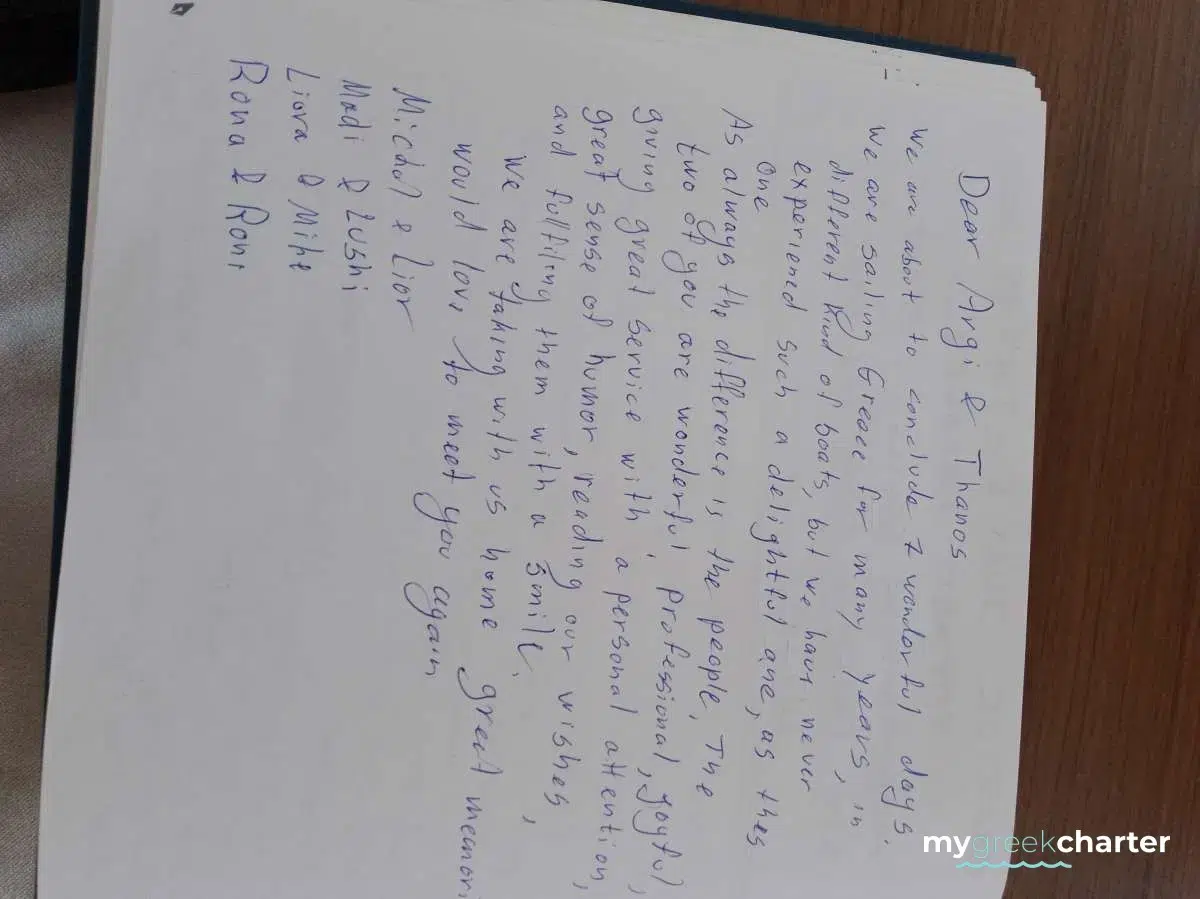 Dear Argi & Thanos
We are about to conclude 7 wonderful days.
We are sailing Greece for many years, in
different kind of boats, but we have never
experiened such a delightful one, as thes
one
As always the difference is the people. The
two of you are wonderful, professional, joyful,
giving great service with a personal attention,
great sense of humor, reading our wishes,
and fulfiling them with a smile.
We are taking with us home great memori
would love to meet you again
Michal & Lior
Madi & Zushi
Liora & Mike
Rona & Roni
mygreekcharter